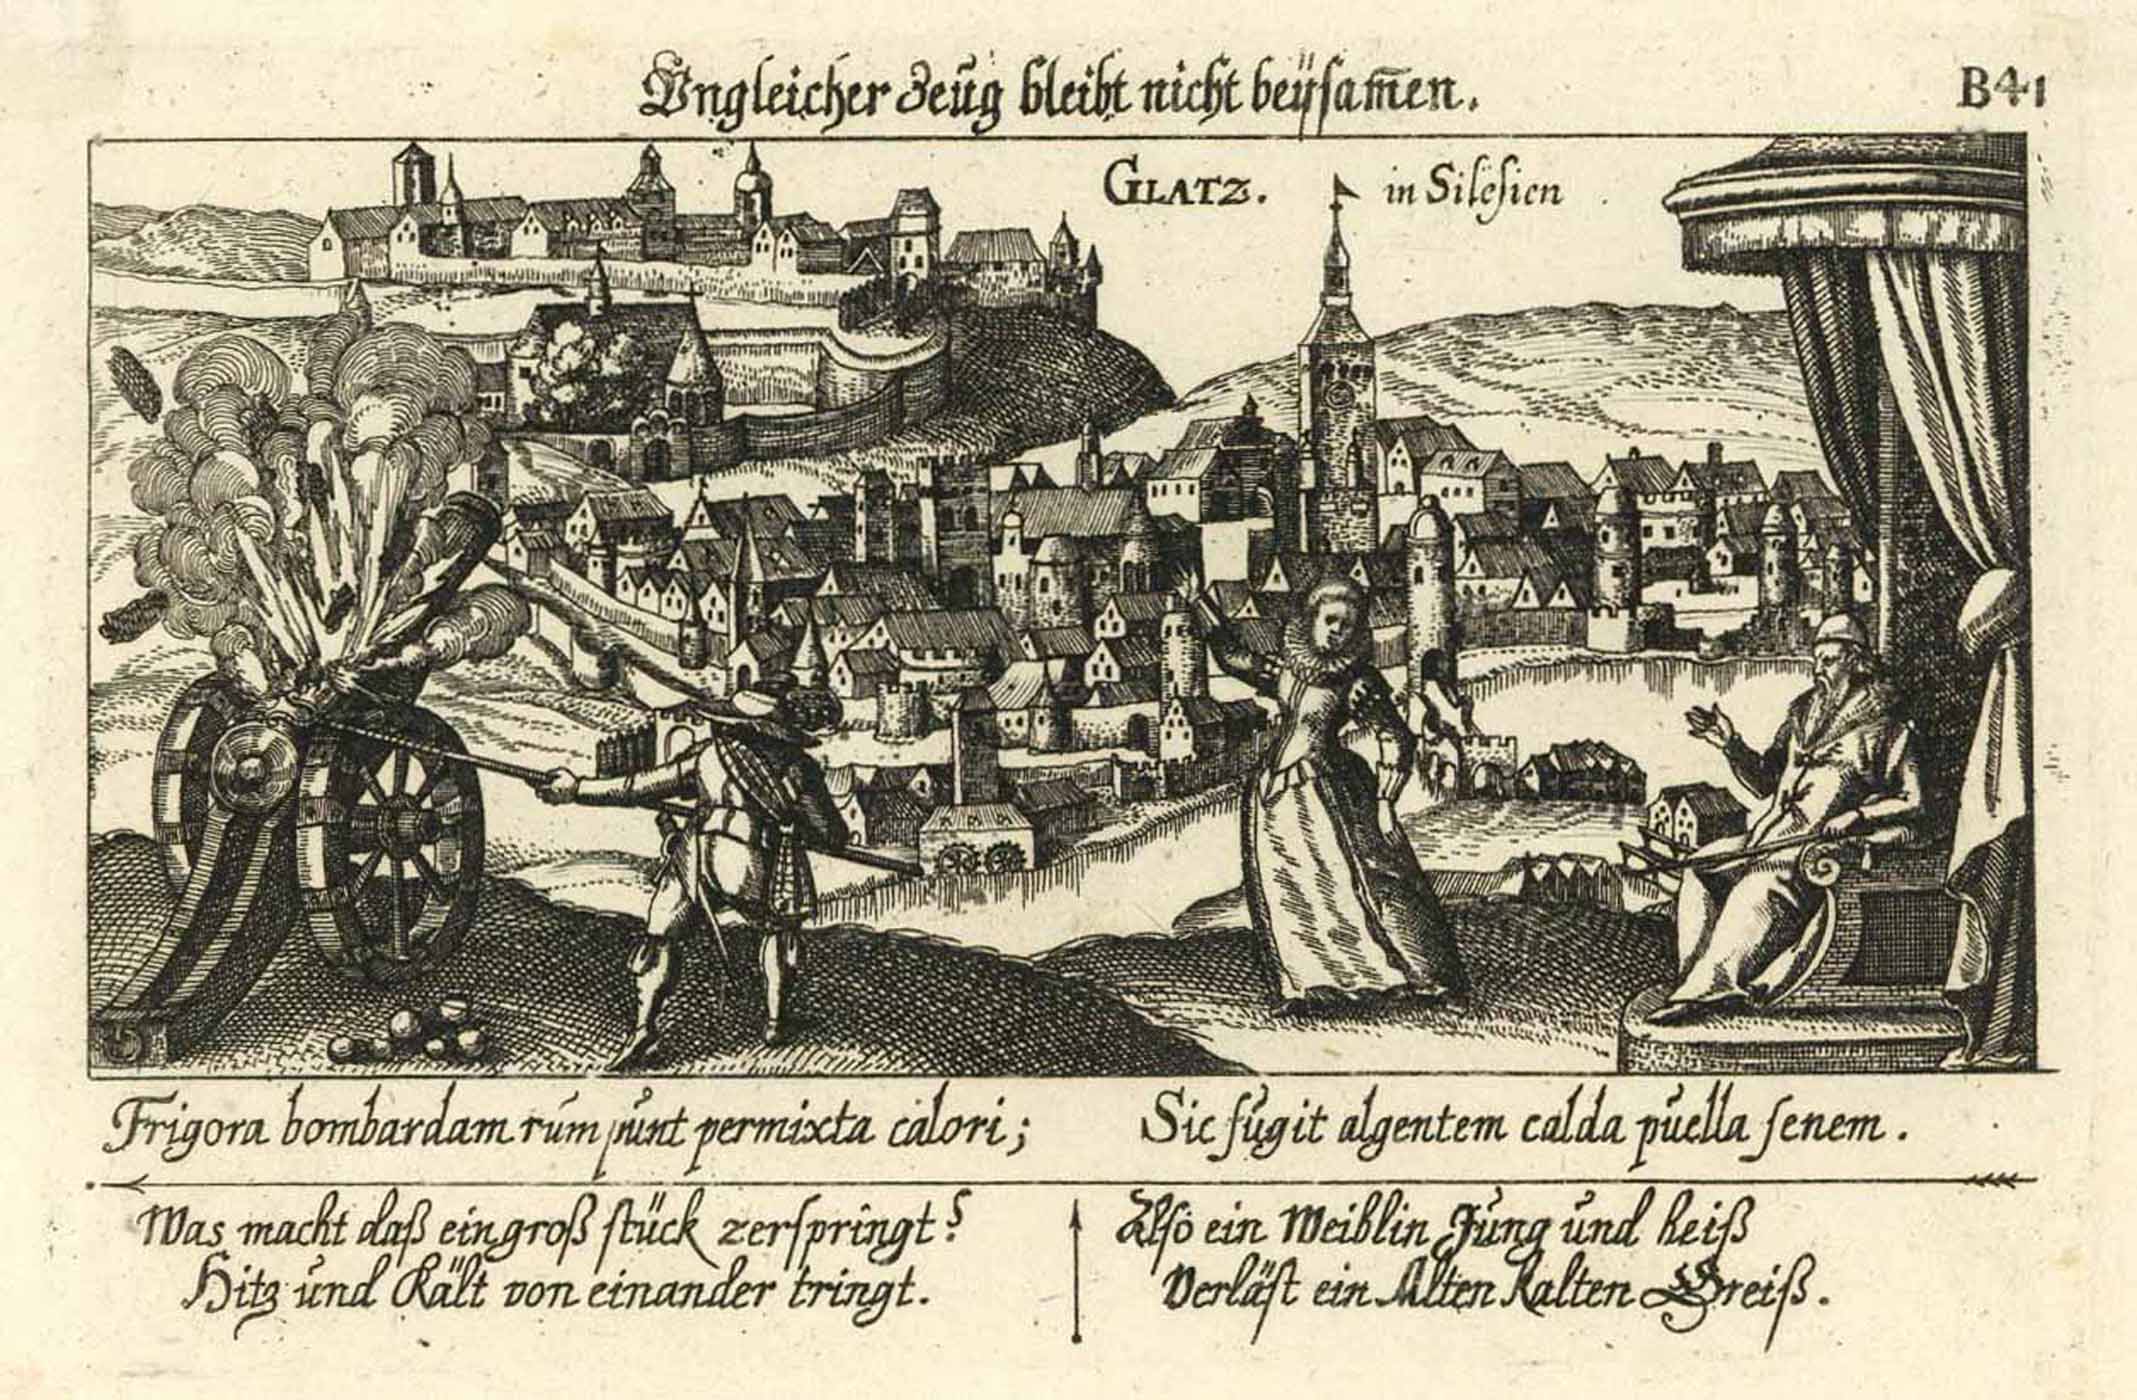 Ungleicher Zeug bleibt nicht beÿsam̅en.
B41
GLATZ. in Silesien
Frigora bombardam rumpunt permixta calori; Sic fugit algentem calda puella senem.
Was macht daß ein groß stück zerspringt?
Hitz und Kält von einander tringt.
Also ein Weiblin Jung und heiß
Verläst ein Alten kalten Greiß.